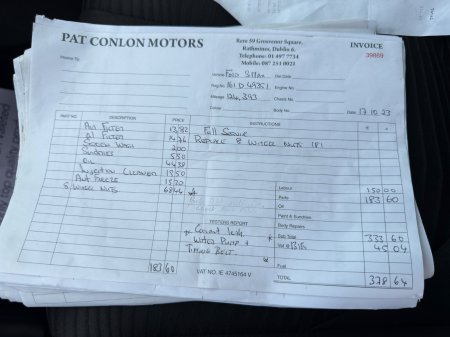 PAT CONLON MOTORS
Rere 59 Grosvenor Square,
Rathmines, Dublin 6.
Telephone: 01 497 7734
Mobile: 087 251 0021
INVOICE
39869
Invoice To:
Vehicle: FORD S MAX
Due Date
Reg.No: 161 D 49351
Engine No:
Mileage 124,393
Chassis No:
Colour:
Order No:
Date 17.10.23
PART NO. DESCRIPTION PRICE INSTRUCTIONS
AIR FILTER 13/92 Full Service
OIL FILTER 14.76 REPLACE 8 WHEEL NUTS
SCREEN WASH 200
SUNDRIES 550
OIL 4438
INJECTION CLEANER 1350
ANTI FREEZE
8 WHEEL NUTS 6846
Labour 150 00
Parts 183 60
Oil
Paint & Sundries
Body Repairs
TESTERS REPORT
* Coolant leak
WATER PUMP +
TIMING BELT
Sub Total 333 60
Vat @ 13½% 45 04
Fuel
183/60
VAT NO. IE 4745164 V
TOTAL 378 64